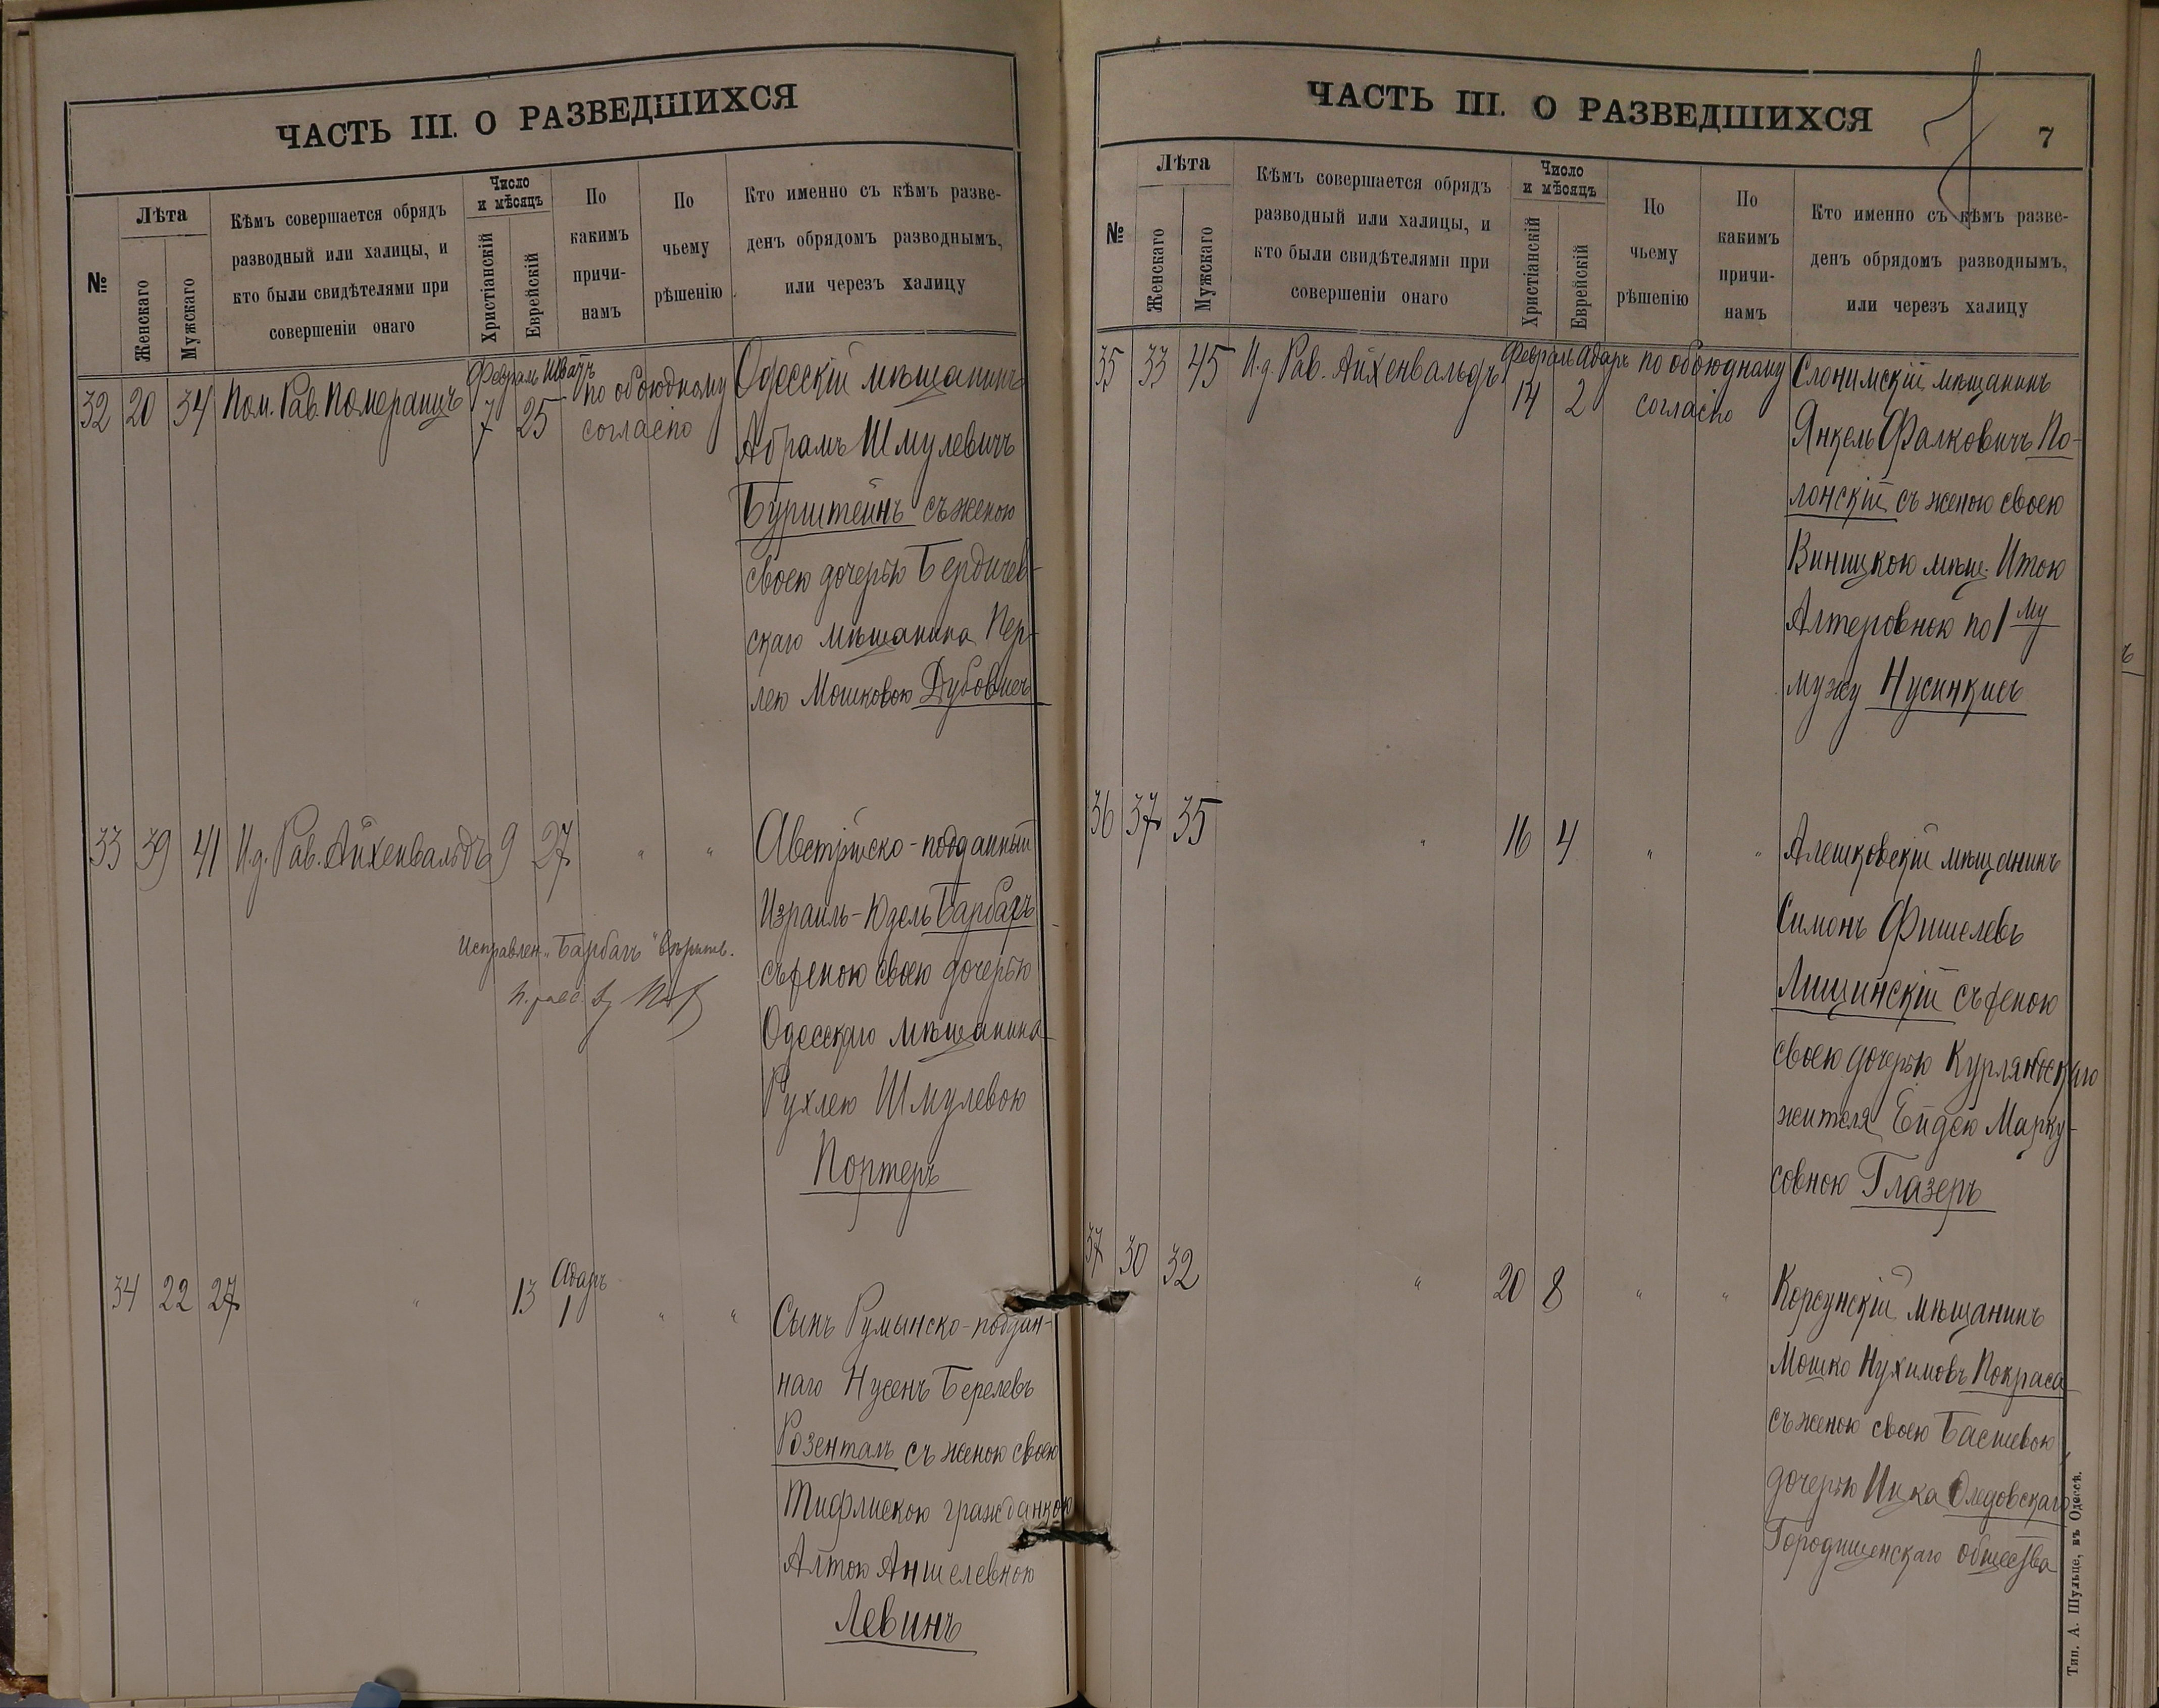 ЧАСТЬ III. О РАЗВЕДШИХСЯ
№
Лѣта
Женскаго
Мужскаго
Кѣмъ совершается обрядъ
разводный или халицы, и
кто были свидѣтелями при
совершеніи онаго
Число
и мѣсяцъ
Христіанскій
Еврейскій
По
какимъ
причи-
намъ
По
чьему
рѣшенію
Кто именно съ кѣмъ разве-
денъ обрядомъ разводнымъ,
или через​ъ халицу
32 20 34 Пом. Рав. Померанцъ
Февраль Шватъ
7 25
по обоюдному
согласію
Одесскій мѣщанинъ
Абрамъ Шмулевичъ
Бурштейнъ съ женою
своею дочерью Бердичев-
скаго мѣщанина Пер-
лею Мошковою
33 39 41 И.д. Рав. Айхенвальдъ 9 27 " "
Австрійско-подданный
Израиль-Юдель Барбахъ
съ женою своею дочерью
Одесскаго мѣщанина
Рухлею Шмулевою
Портеръ
Исправлен. „Барбахъ"
34 22 27 " 13
Адаръ
1 " "
Сынъ Румынско-поддан-
наго Нусенъ Берелевъ
Розенталь съ женою своею
Тифлискою гражданкою
Алтою Аншелевною
Левинъ
ЧАСТЬ III. О РАЗВЕДШИХСЯ
7
№
Лѣта
Женскаго
Мужскаго
Кѣмъ совершается обрядъ
разводный или халицы, и
кто были свидѣтелями при
совершеніи онаго
Число
и мѣсяцъ
Христіанскій
Еврейскій
По
чьему
рѣшенію
По
какимъ
причи-
намъ
Кто именно съ кѣмъ разве-
денъ обрядомъ разводнымъ,
или через​ъ халицу
35 33 45 И.д. Рав. Айхенвальдъ
Февраль Адаръ
14 2
по обоюдному
согласію
Слонимскій мѣщанинъ
Янкель Фалковичъ По-
лонскій съ женою своею
Виницкою мѣщ. Итою
Алтеровною по 1му
мужу Нусинкисъ
36 37 35 " 16 4 " "
Алешковскій мѣщанинъ
Симонъ Фишелевъ
Лищинскій съ женою
своею дочерью Курляндскаго
жителя Ейдею Марку-
совною Глазеръ
37 30 32 " 20 8 " "
Корсунскій мѣщанинъ
Мошко Нухимовъ Покраса
съ женою своею Басшевою,
дочерью Ицка Следовскаго
Городищенскаго общества
Тип. А. Шульце, въ Одессѣ.